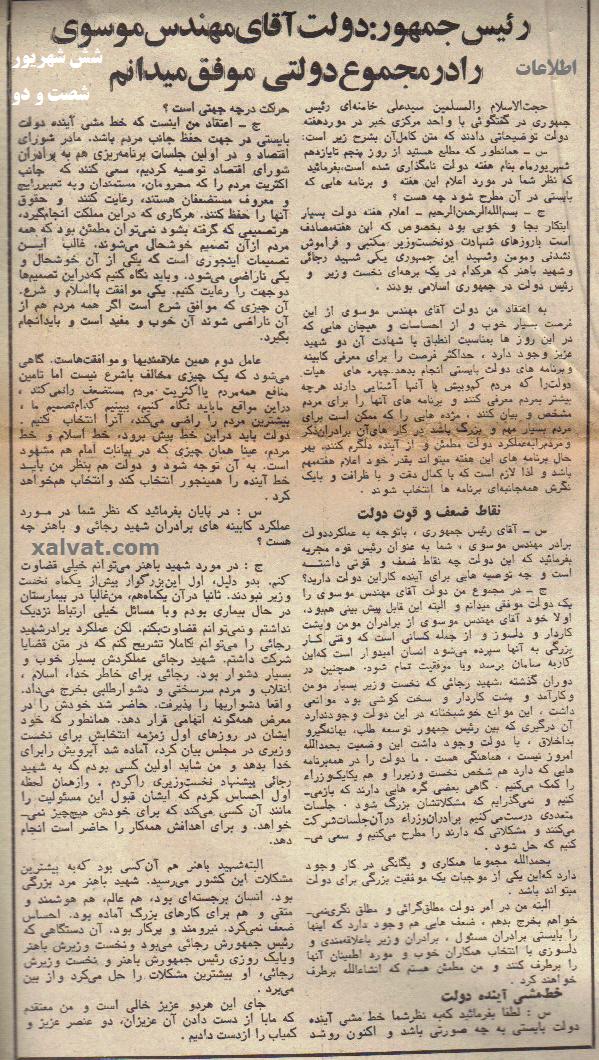 رئیس جمهور: دولت آقای مهندس موسوی
را در مجموع دولتی موفق میدانم
اطلاعات
شش شهریور
شصت و دو
حجت‌الاسلام والمسلمین سیدعلی خامنه‌ای رئیس
جمهوری در گفتگوئی با واحد مرکزی خبر در مورد هفته
دولت توضیحاتی دادند که متن کامل آن بشرح زیر است:
س ــ همانطور که مطلع هستید از روز پنجم تا یازدهم
شهریورماه بنام هفته دولت نامگذاری شده است، بفرمائید
که نظر شما در مورد اعلام این هفته و برنامه هایی که
بایستی در آن مطرح شود چه هست ؟
ج ــ بسم‌الله‌الرحمن‌الرحیم ــ اعلام هفته دولت بسیار
ابتکار بجا و خوبی بود بخصوص که این هفته‌مصادف
است با روزهای شهادت دو نخست‌وزیر مکتبی و فراموش
نشدنی و مومن و شهید این جمهوری یکی شهید رجائی
و شهید باهنر که هرکدام در یک برهه‌ای نخست وزیر و
رئیس دولت در جمهوری اسلامی بودند .
به اعتقاد من دولت آقای مهندس موسوی از این
فرصت بسیار خوب و از احساسات و هیجان هایی که
در این روز ها بمناسبت انطباق با شهادت آن دو شهید
عزیز وجود دارد ، حداکثر فرصت را برای معرفی کابینه
و برنامه های دولت بایستی انجام بدهد. چهره های هیات
دولت را که مردم کم‌وبیش با آنها آشنایی دارند هرچه
بیشتر بمردم معرفی کنند و برنامه های آنها را برای مردم
مشخص و بیان کنند ، مژده هایی را که ممکن است برای
مردم بسیار مهم و بزرگ باشد در کار های آن برادران ذکر
و مردم را به عملکرد دولت مطمئن و از آینده دلگرم کنند. بهر
حال برنامه های این هفته میتواند بقدر خود اعلام هفته‌مهم
باشد و لذا لازم است که با کمال دقت و با ظرافت و با یک
نگرش همه‌جانبه‌ای برنامه ها انتخاب شوند .
نقاط ضعف و قوت دولت
س ــ آقای رئیس جمهوری ، باتوجه به عملکرد دولت
برادر مهندس موسوی ، شما به عنوان رئیس قوه مجریه
بفرمائید که این دولت چه نقاط ضعف و قوتی داشتــه
است و چه توصیه هایی برای آینده کار این دولت دارید؟
ج ــ در مجموع من دولت آقای مهندس موسوی را
یک دولت موفقی میدانم و البته این قابل پیش بینی هم‌بود،
اولا خود آقای مهندس موسوی از برادران مومن و پشت
کاردار و دلسوز و از جمله کسانی است که وقتی کــار
بزرگی به آنها سپرده می‌شود انسان امیدوار است که‌این
کار به سامان برسد و با موفقیت تمام شود. همچنین در
دوران گذشته ، شهید رجائی که نخست وزیر بسیار مومن
و کارآمد و پشت کاردار و سخت کوشی بود موانعی
داشت ، این موانع خوشبختانه در این دولت وجودندارد
آن درگیری که بین رئیس جمهور توسعه طلب، بهانه‌گیرو
بداخلاق ، با دولت وجود داشت این وضعیت بحمدالله
امروز نیست ، هماهنگی هست . ما دولت را در همه‌برنامه
هایی که دارد هم شخص نخست وزیررا و هم یکایک‌وزراء
را کمک می‌کنیم . گاهی بعضی گره هایی دارند که بازمی‌ــ
کنیم و نمی‌گذاریم که مشکلاتشان بزرگ شود . جلسات
متعددی درست‌می‌کنیم برادران‌وزراء در آن‌جلسات‌شرکت
می‌کنند و مشکلاتی که دارند را مطرح می‌کنیم و سعی می‌ــ
کنیم که حل شود .
بحمدالله مجموعا همکاری و یگانگی در کار وجود
دارد که‌این یکی از موجبات یک موفقیت بزرگی برای دولت
میتواند باشد .
البته من در امر دولت مطلق‌گرائی و مطلق نگری‌نمی‌ــ
خواهم بخرج بدهم ، ضعف هایی هم وجود دارد که اینها
را بایستی برادران مسئول ، برادران وزیر باعلاقمندی و
دلسوزی با انتخاب همکاران خوب و مورد اطمینان آنها
را برطرف کنند و من مطمئن هستم که انشاءالله برطرف
خواهند کرد .
خط‌مشی آینده دولت
س : لطفا بفرمائید که‌به نظر‌شما خط مشی آینده
دولت بایستی به چه صورتی باشد و اکنون روند
حرکت درچه جهتی است ؟
ج ــ اعتقاد من اینست که خط مشی آینده دولت
بایستی در جهت حفظ جانب مردم باشد. مادر شورای
اقتصاد و در اولین جلسات برنامه‌ریزی هم به برادران
شورای اقتصاد توصیه کردیم، سعی کنند که جانب
اکثریت مردم را که محرومان، مستمندان و به‌تعبیررایج
و معروف مستضعفان هستند، رعایت کنند و حقوق
آنها را حفظ کنند. هرکاری که دراین مملکت انجام‌بگیرد،
هرتصمیمی که گرفته بشود نمی‌توان مطمئن بود که همه
مردم ازآن تصمیم خوشحال می‌شوند. غالب ایــن
تصمیمات اینجوری است که یکی از آن خوشحال و
یکی ناراضی می‌شود. و باید نگاه کنیم که‌دراین تصمیم‌ها
دوجهت را رعایت کنیم. یکی موافقت بااسلام و شرع.
آن چیزی که موافق شرع است اگر همه مردم هم از
آن ناراضی شوند آن خوب و مفید است و بایدانجام
بگیرد.
عامل دوم همین علاقمندیها وموافقت‌هاست. گاهی
می‌شود که یک چیزی مخالف باشرع نیست اما تامین
منافع همه‌مردم یااکثریت مردم مستضعف رانمی‌کند ،
دراین مواقع مابایدنگاه کنیم، ببینیم کدام‌تصمیم ما ،
بیشترین مردم را راضی می‌کند، آنرا انتخاب کنیم .
دولت باید دراین خط پیش برود، خط اسلام و خط
مردم، عینا همان چیزی که در بیانات امام هم مشهود
است. به آن توجه شود و دولت هم بنظر من بایــد
خط آینده را همینجور انتخاب کند و انتخاب هم‌خواهد
کرد .
س : در پایان بفرمائید که نظر شما در مــورد
عملکرد کابینه های برادران شهید رجائی و باهنر چه
هست ؟
xalvat.com
ج : در مورد شهید باهنر می‌توانم خیلی قضاوت
کنم. بدو دلیل، اول این‌بزرگوار بیش‌از یکماه نخست
وزیر نبودند. ثانیا درآن یکماه‌هم، من‌غالبا در بیمارستان
در حال بیماری بودم وبا مسائل خیلی ارتباط نزدیک
نداشتم و نمی‌توانم قضاوت‌بکنم. لکن عملکرد برادرشهید
رجائی را می‌توانم کاملا تشریح کنم که در متن قضایا
شرکت داشتم. شهید رجائی عملکردش بسیار خوب و
بسیار دشوار بود. رجائی برای خاطر خدا، اسلام ،
انقلاب و مردم سرسختی و دشوارطلبی بخرج می‌داد.
واقعا دشواریها را پذیرفت. حاضر شد خودش را در
معرض همه‌گونه اتهامی قرار دهد. همانطور که خود
ایشان در روزهای اول زمزمه انتخابش برای نخست
وزیری در مجلس بیان کرد، آماده شد آبرویش رابرای
خدا بدهد و من شاید اولین کسی بودم که به شهید
رجائی پیشنهاد نخست‌وزیری راکردم . وازهمان لحظه
اول احساس کردم که ایشان قبول این مسئولیت را
مانند آن کسی می‌کند که برای خودش هیچ‌چیز نمی‌ــ
خواهد. و برای اهدافش همه‌کار را حاضر است انجام
دهد.
البته‌شهید باهنر هم آن‌کسی بود که‌به بیشترین
مشکلات این کشور می‌رسید. شهید باهنر مرد بزرگی
بود. انسان برجسته‌ای بود، هم عالم، هم هوشمند و
متقی و هم برای کارهای بزرگ آماده بود. احساس
ضعف نمی‌کرد. نیرومند و پرکار بود. آن دستگاهی که
رئیس جمهورش رجائی می‌بود و نخست وزیرش باهنر
ویایک روزی رئیس جمهورش باهنر و نخست وزیرش
رجائی، او بیشترین مشکلات را حل می‌کرد واز بین
می‌برد .
جای این هردو عزیز خالی است و من معتقدم
که مابا از دست دادن آن عزیزان، دو عنصر عزیز و
کمیاب را ازدست دادیم .